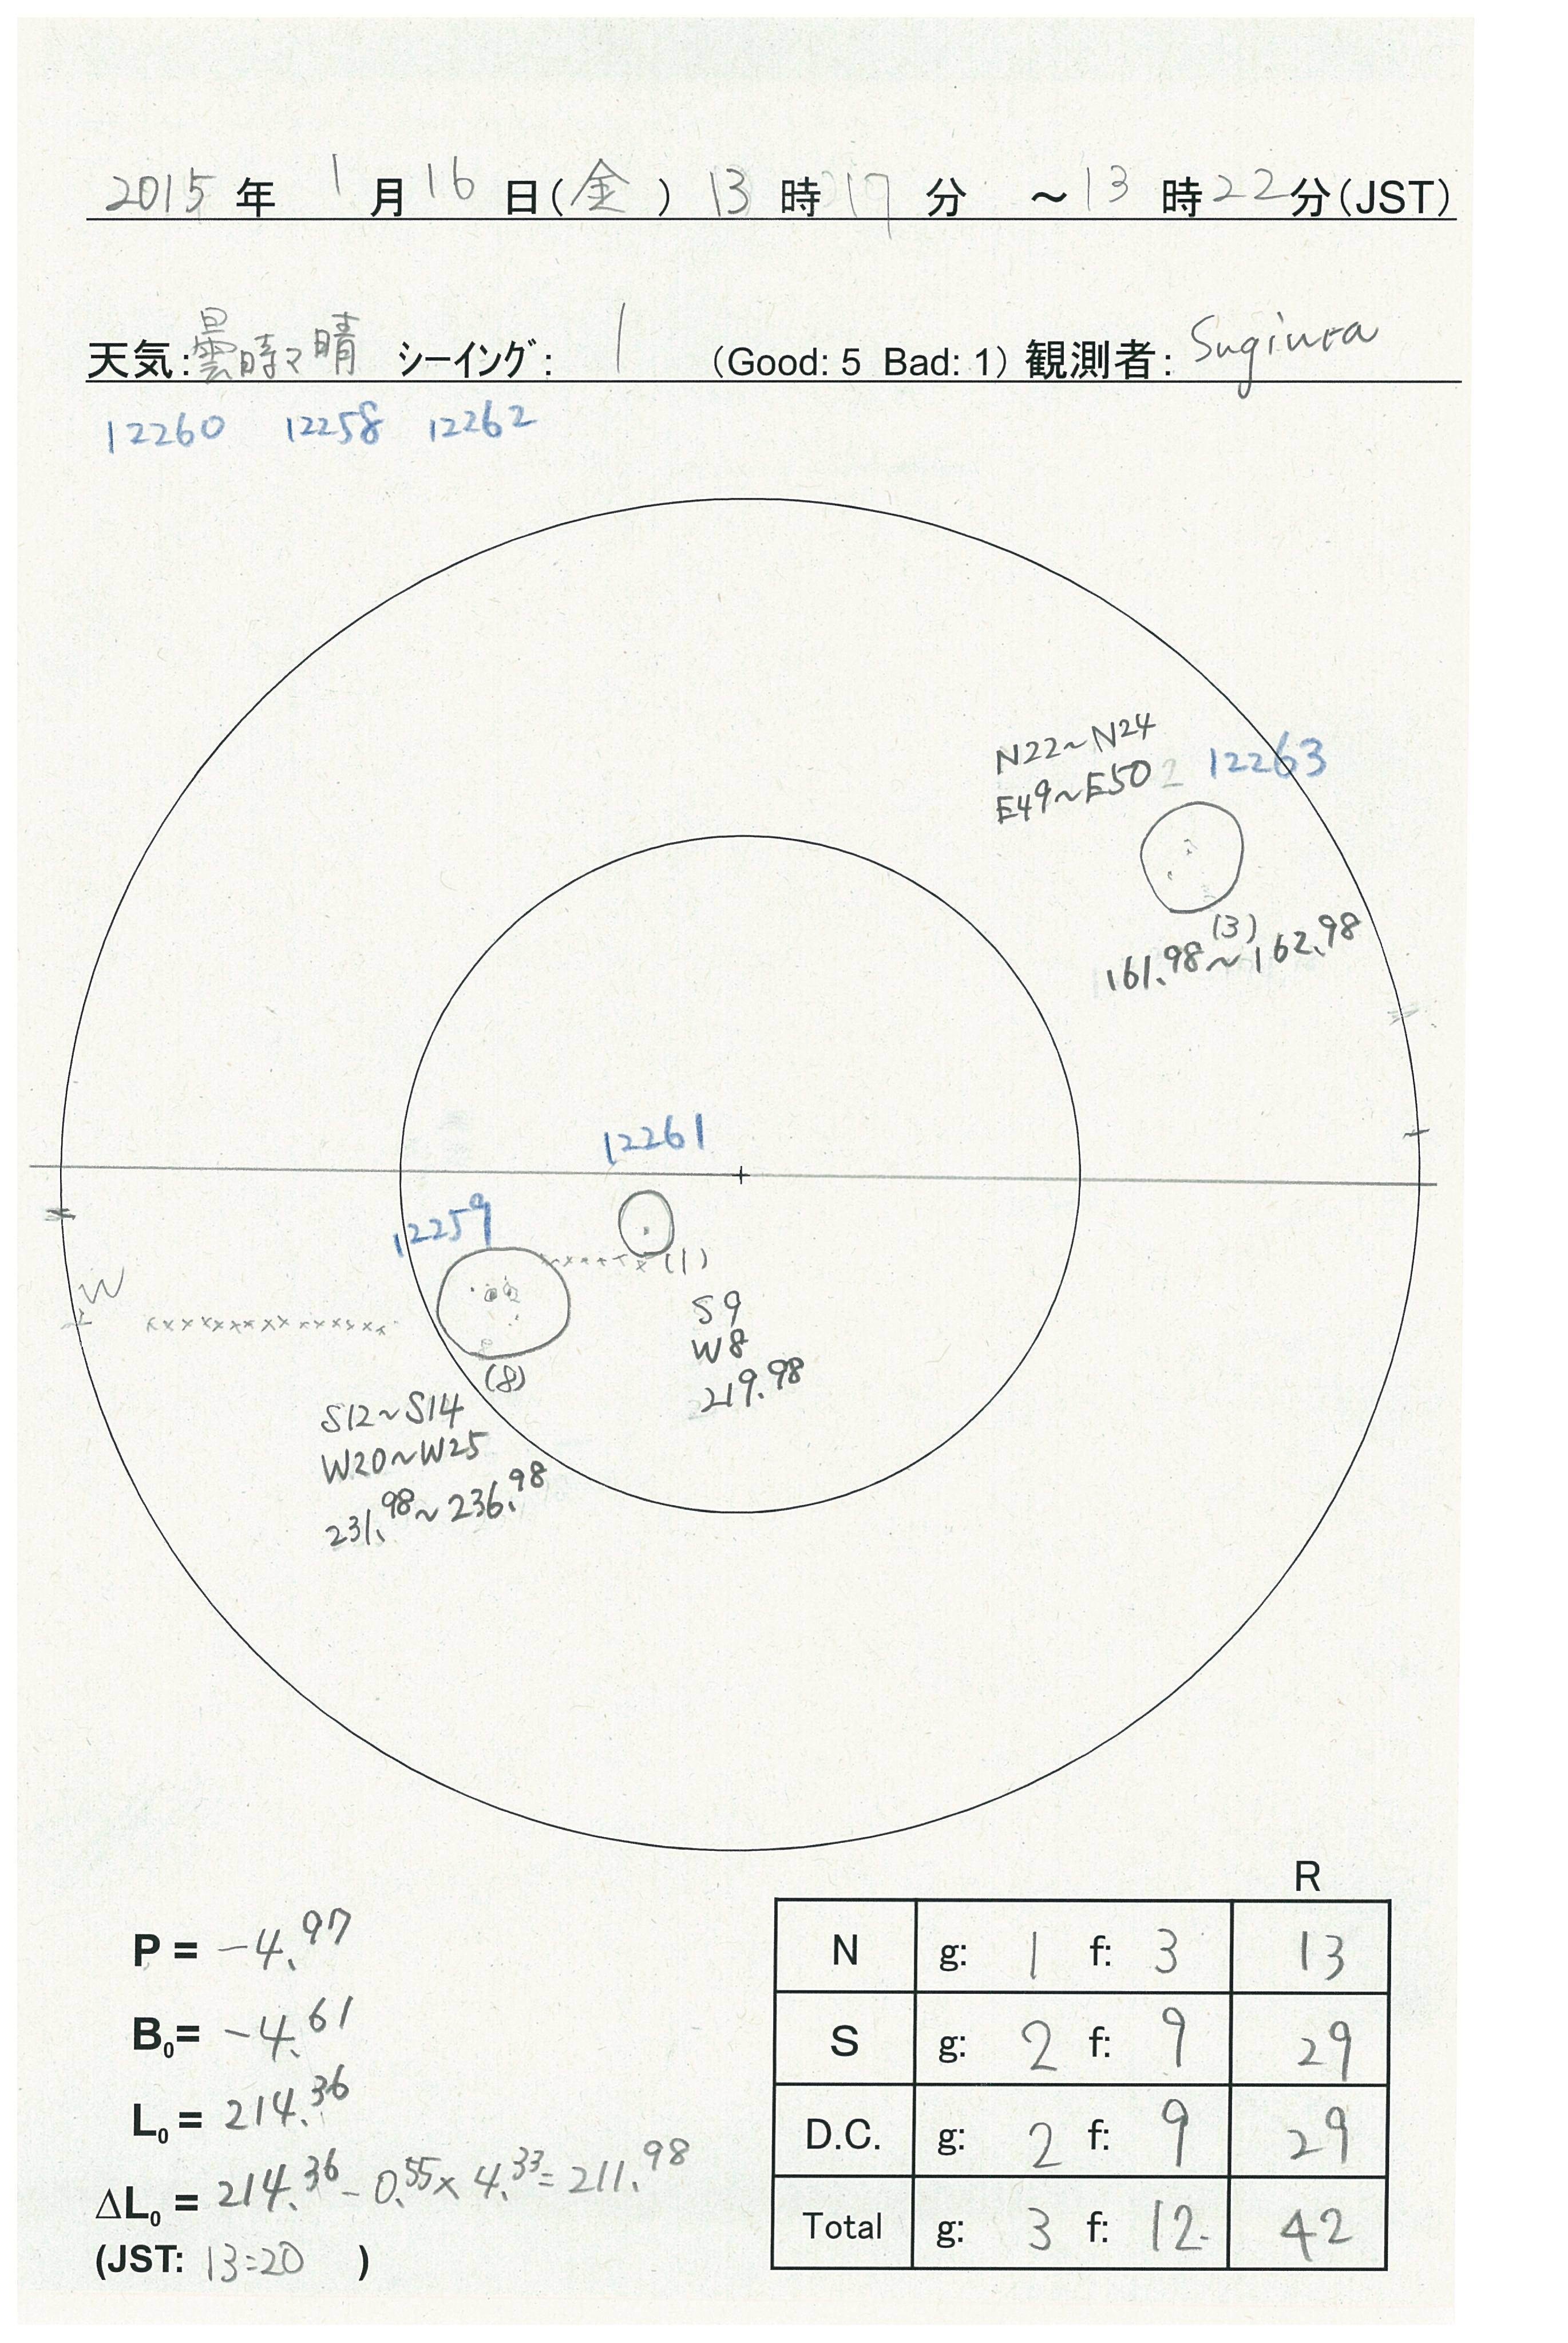 2015 年 1 月 16 日(金) 13 時 17 分 ～13 時 22 分(JST)
天気:曇時々晴 シーイング: 1 (Good: 5 Bad: 1) 観測者: Sugiura
12260 12258 12262
N22~N24
E49~E50
12263
(3)
161.98~162.98
12261
12259
(1)
S9
W8
219.98
W
(8)
S12~S14
W20~W25
231.98~236.98
R
P = -4.97
B0= -4.61
L0 = 214.36
ΔL0 = 214.36-0.55×4.33=211.98
(JST: 13:20 )
N g: 1 f: 3 13
S g: 2 f: 9 29
D.C. g: 2 f: 9 29
Total g: 3 f: 12 42